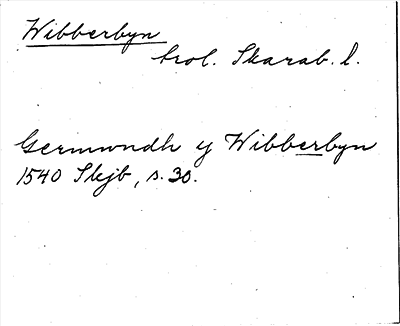 Wibberbyn
trol. Skarab. l.
Germundh y Wibberbyn
1540 Skjb, s. 30.